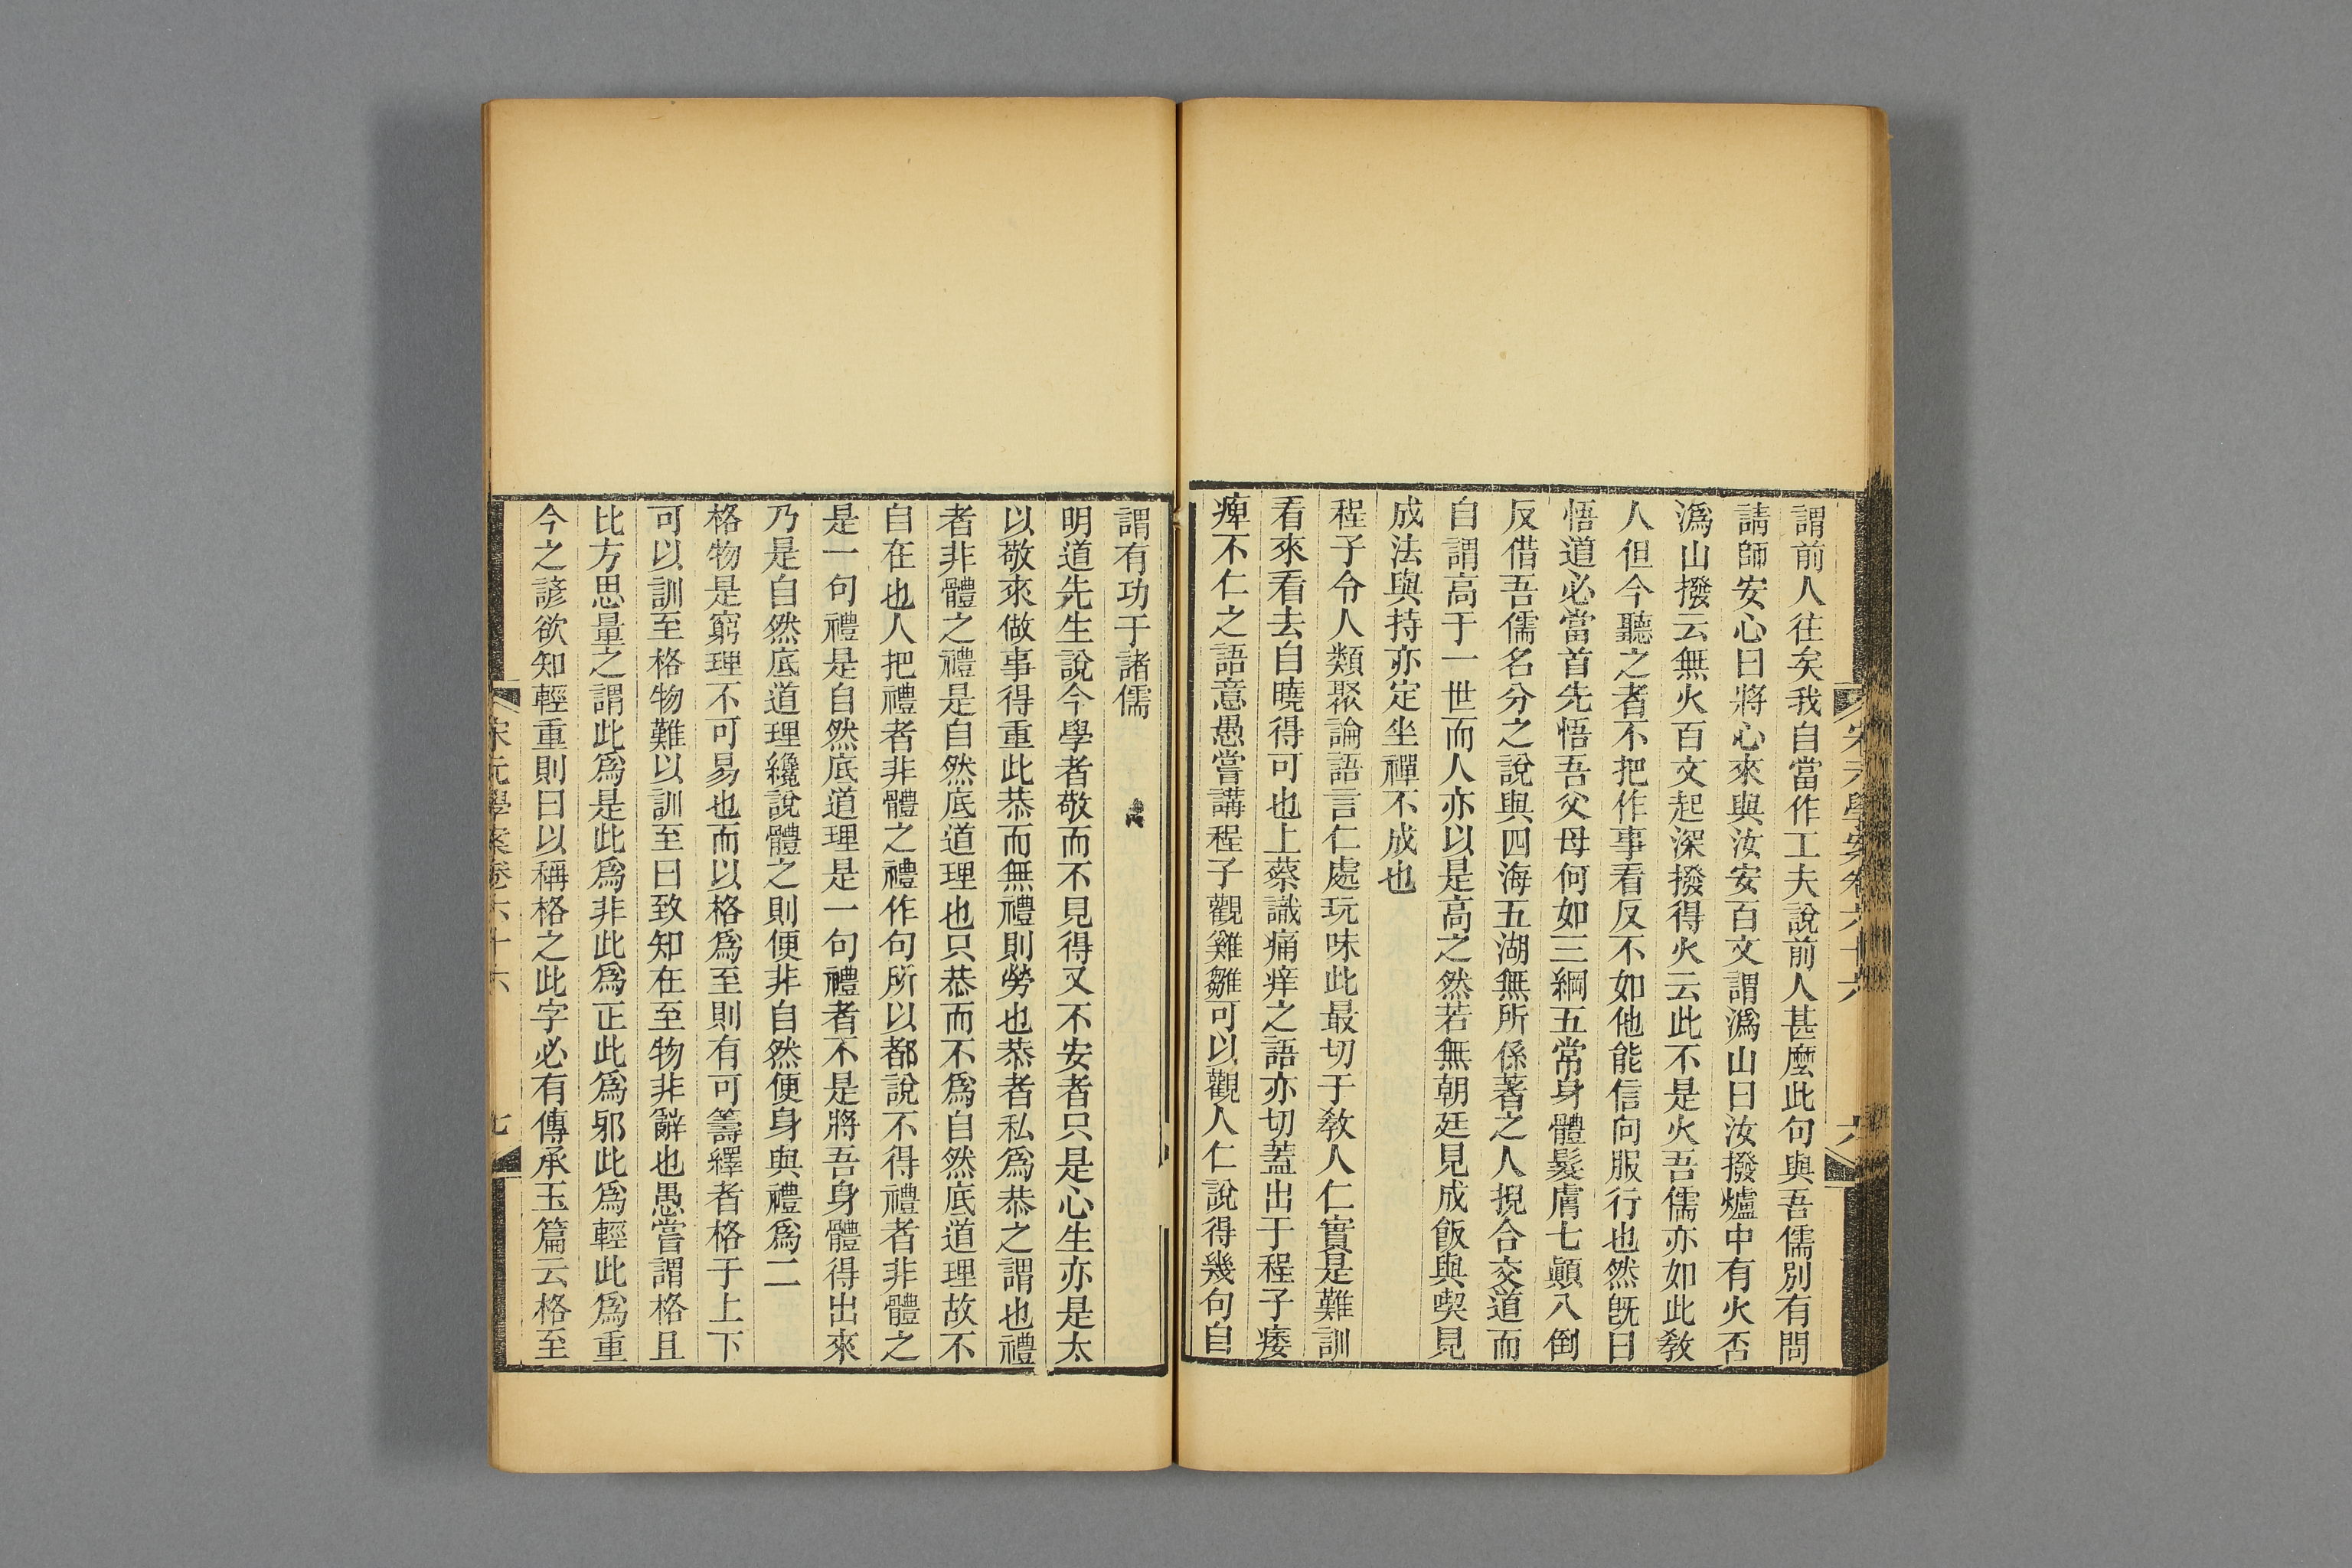 宋元學案卷六十六
六
謂前人往矣我自當作工夫說前人甚麼此句與吾儒別有問
請師安心曰將心來與汝安百丈謂潙山曰汝撥爐中有火否
潙山撥云無火百丈起深撥得火云此不是火吾儒亦如此敎
人但今聽之者不把作事看反不如他能信向服行也然旣曰
悟道必當首先悟吾父母何如三綱五常身體髮膚七顚八倒
反借吾儒名分之說與四海五湖無所係著之人掜合交道而
自謂高于一世而人亦以是高之然若無朝廷見成飯與喫見
成法與持亦定坐禪不成也
程子令人類聚論語言仁處玩味此最切于敎人仁實是難訓
看來看去自曉得可也上蔡識痛痒之語亦切蓋出于程子痿
痺不仁之語意愚嘗講程子觀雞雛可以觀人仁說得幾句自
謂有功于諸儒
明道先生說今學者敬而不見得又不安者只是心生亦是太
以敬來做事得重此恭而無禮則勞也恭者私爲恭之謂也禮
者非體之禮是自然底道理也只恭而不爲自然底道理故不
自在也人把禮者非體之禮作句所以都說不得禮者非體之
是一句禮是自然底道理是一句禮者不是將吾身體得出來
乃是自然底道理纔說體之則便非自然便身與禮爲二
格物是窮理不可易也而以格爲至則有可籌繹者格于上下
可以訓至格物難以訓至曰致知在至物非辭也愚嘗謂格且
比方思量之謂此爲是此爲非此爲正此爲邪此爲輕此爲重
今之諺欲知輕重則曰以稱格之此字必有傳承玉篇云格至
宋元學案卷六十六
七